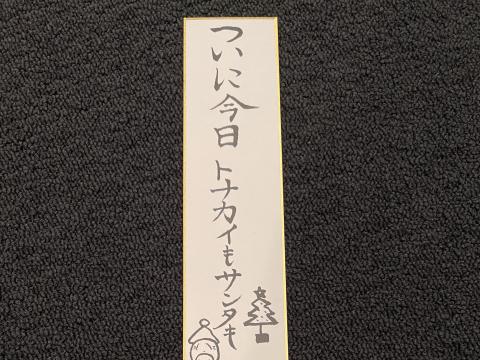 ついに今日トナカイもサンタも